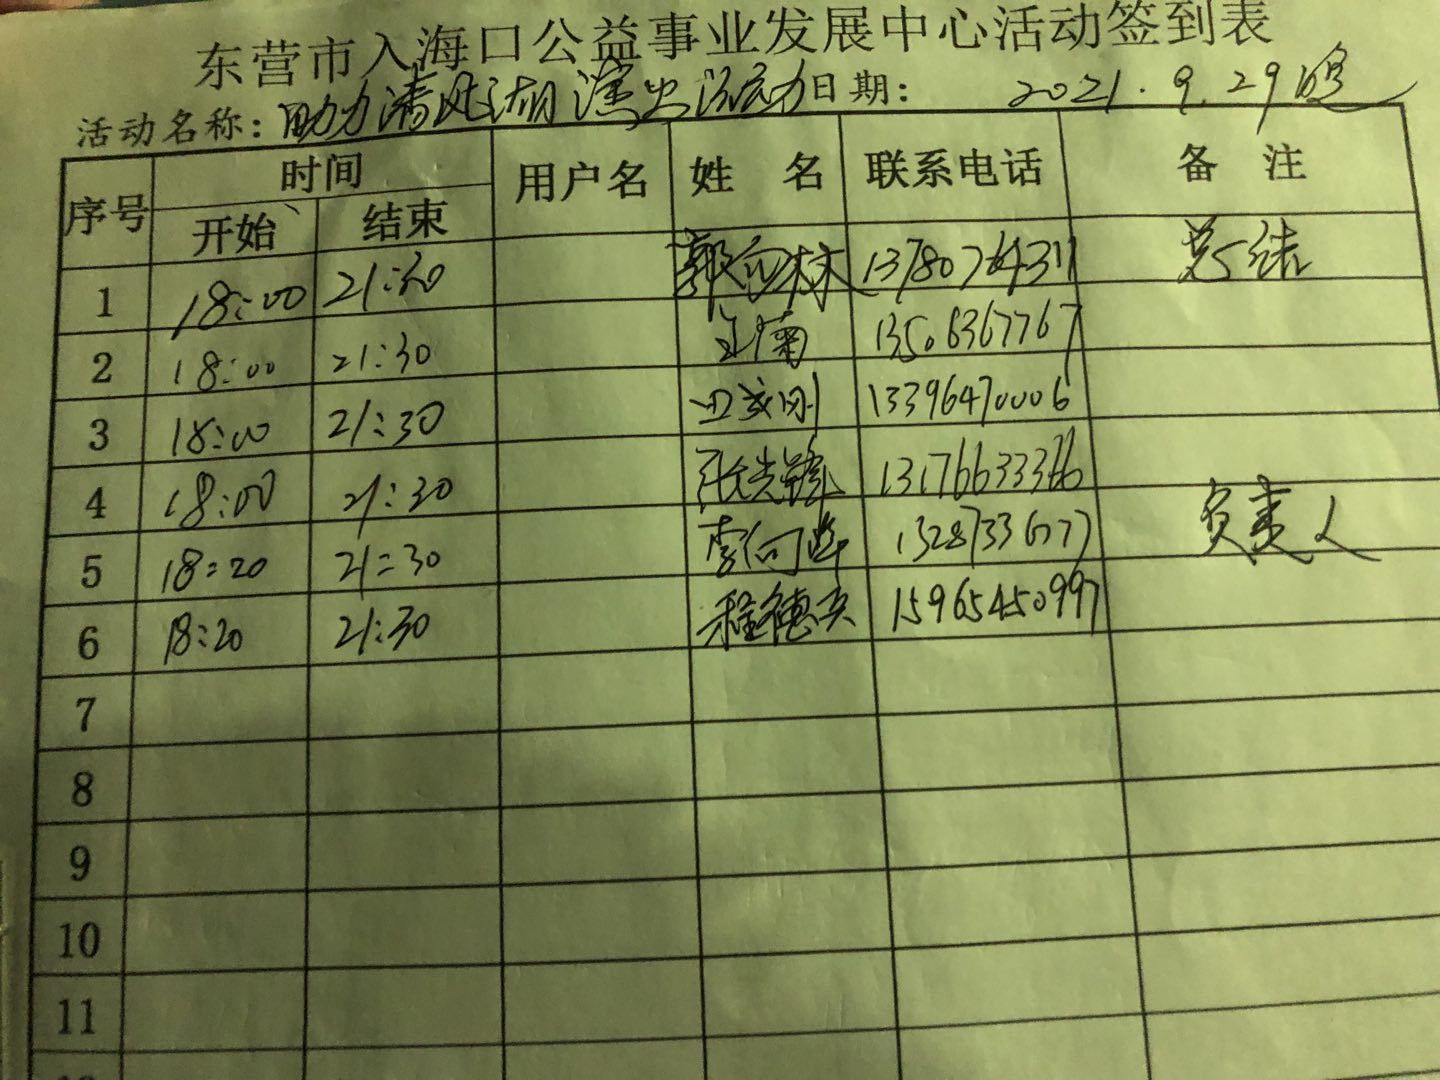 东营市入海口公益事业发展中心活动签到表
活动名称：助力清风湖演出活动 日期： 2021.9.29晚
序号 时间 用户名 姓 名 联系电话 备 注
开始 结束
1 18:00 21:30 郭向林 13780764311 总结
2 18:00 21:30 王菊 13506367767
3 18:00 21:30 13396470006
4 18:00 21:30 张光 13176633366
5 18:20 21:30 李向 13287336777 负责人
6 18:20 21:30 程德 15965450997
7
8
9
10
11